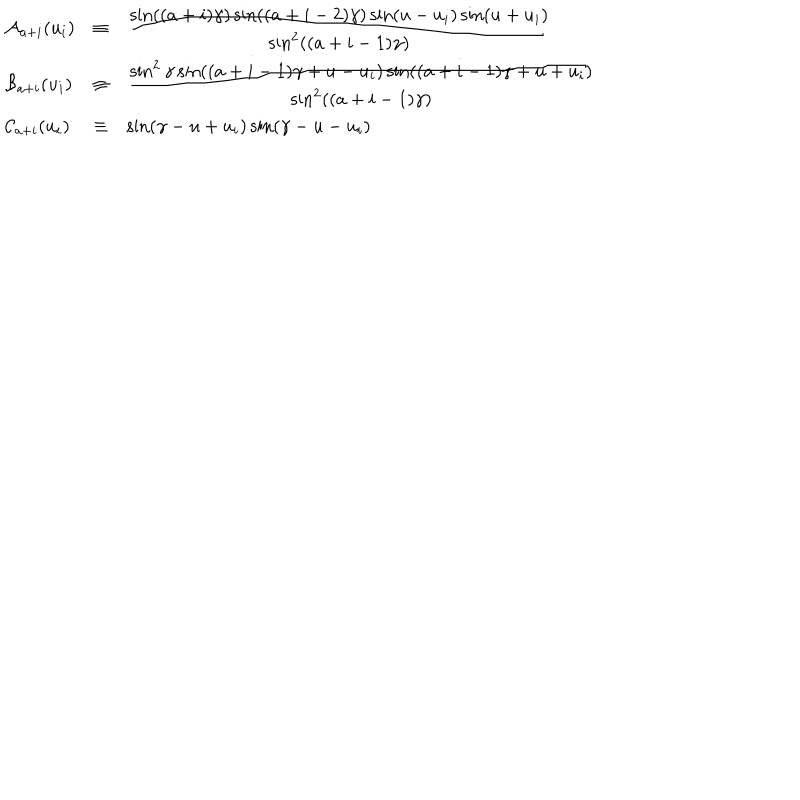 \mathcal{A}_{a+i}(u_i) \equiv \frac{\sin((a+i)\gamma)\sin((a+i-2)\gamma)\sin(u-u_i)\sin(u+u_i)}{\sin^2((a+i-1)\gamma)}
\mathcal{B}_{a+i}(u_i) \equiv \frac{\sin^2\gamma\sin((a+i-1)\gamma+u-u_i)\sin((a+i-1)\gamma+u+u_i)}{\sin^2((a+i-1)\gamma)}
\mathcal{C}_{a+i}(u_i) \equiv \sin(\gamma-u+u_i)\sin(\gamma-u-u_i)